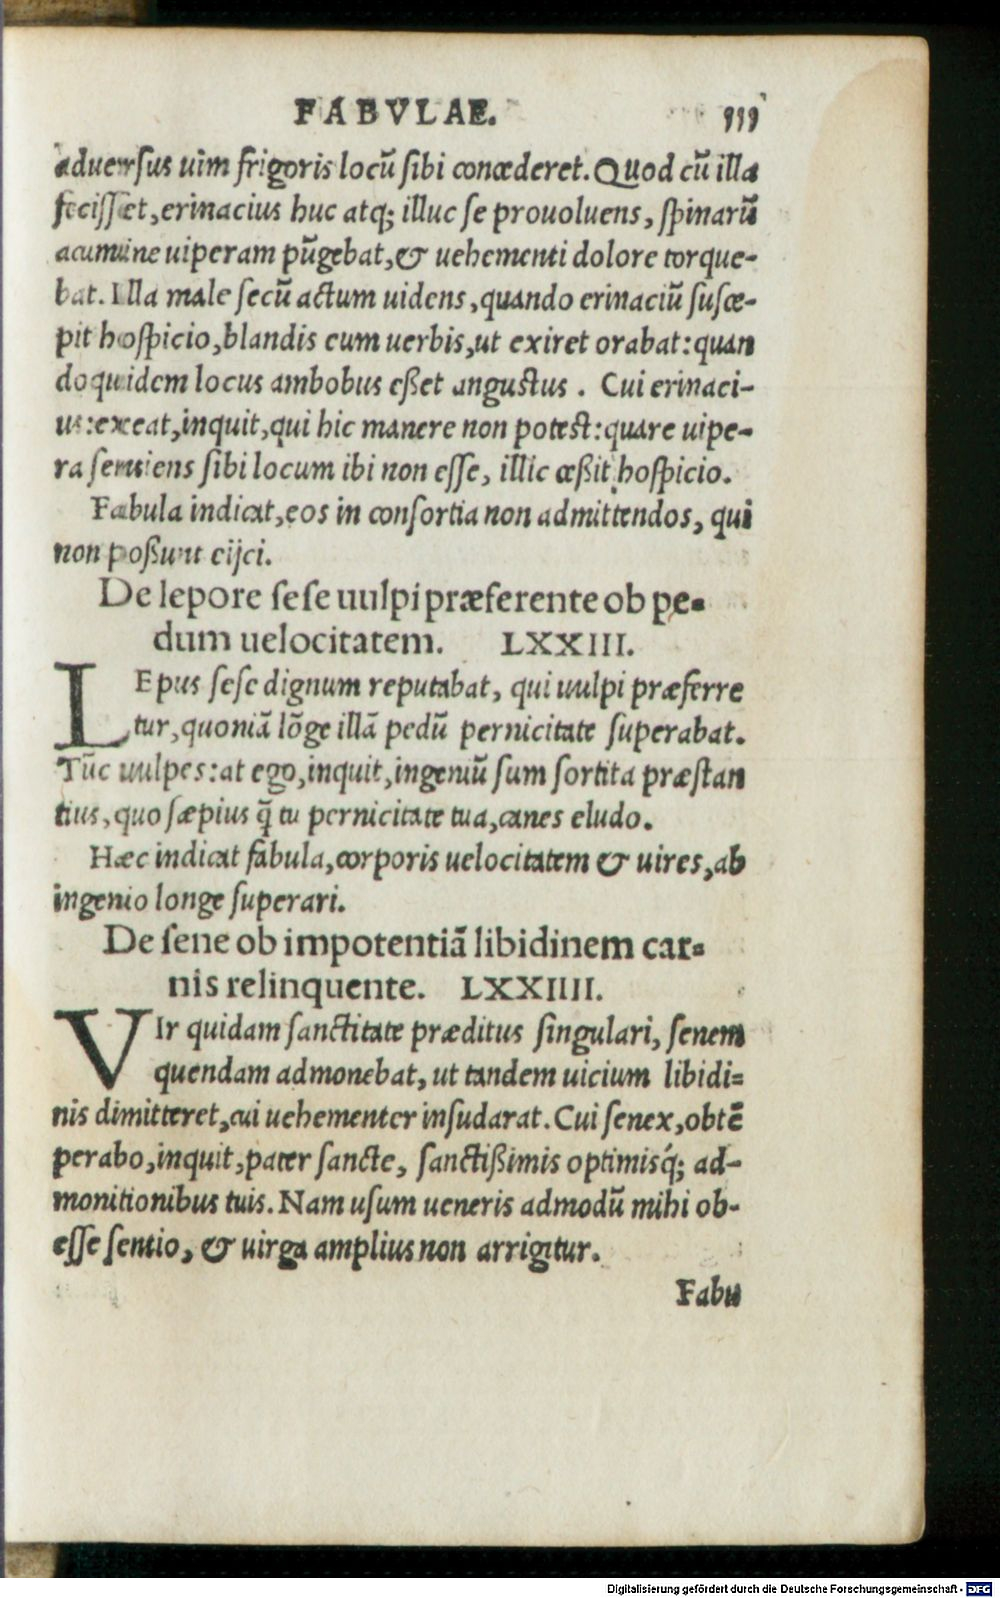 FABVLAE. 111
aduersus uim frigoris locũ sibi concederet. Quod cũ illa
fecisset, erinacius huc atq; illuc se prouoluens, spinarũ
acumine uiperam pũgebat, & uehementi dolore torque-
bat. Illa male secũ actum uidens, quando erinaciũ susce-
pit hospicio, blandis eum uerbis, ut exiret orabat: quan
doquidem locus ambobus eßet angustus. Cui erinaci-
us: exeat, inquit, qui hic manere non potest: quare uipe-
ra sentiens sibi locum ibi non esse, illic ceßit hospicio.
Fabula indicat, eos in consortia non admittendos, qui
non poßunt eijci.
De lepore sese uulpi præferente ob pe-
dum uelocitatem. LXXIII.
LEpus sese dignum reputabat, qui uulpi præferre
tur, quoniã lõge illã pedũ pernicitate superabat.
Tũc uulpes: at ego, inquit, ingeniũ sum sortita præstan
tius, quo sæpius q̃ tu pernicitate tua, canes eludo.
Hæc indicat fabula, corporis uelocitatem & uires, ab
ingenio longe superari.
De sene ob impotentiã libidinem car-
nis relinquente. LXXIIII.
VIr quidam sanctitate præditus singulari, senem
quendam admonebat, ut tandem uicium libidi-
nis dimitteret, cui uehementer insudarat. Cui senex, obtẽ
perabo, inquit, pater sancte, sanctißimis optimisq́; ad-
monitionibus tuis. Nam usum ueneris admodũ mihi ob-
esse sentio, & uirga amplius non arrigitur.
Fabu
Digitalisierung gefördert durch die Deutsche Forschungsgemeinschaft - DFG